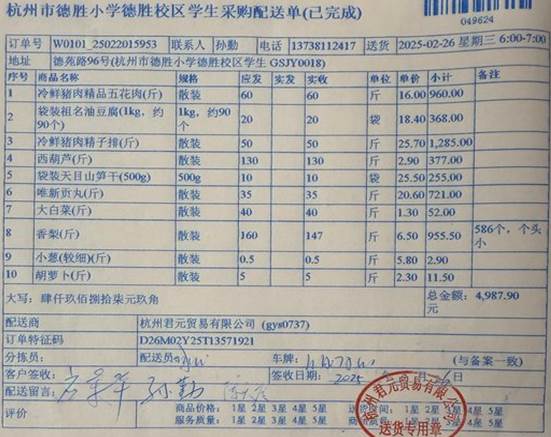 杭州市德胜小学德胜校区学生采购配送单(已完成)
049624
订单号 W0101_25022015953 联系人 孙勤 电话 13738112417 送货 2025-02-26 星期三 6:00-7:00
地址 德苑路96号(杭州市德胜小学德胜校区学生 GSJY0018)
序号 商品名称 规格 应发 实发 实收 单位 单价 小计 备注
1 冷鲜猪肉精品五花肉(斤) 散装 60 60 斤 16.00 960.00
2 袋装祖名油豆腐(1kg，约90个) 1kg，约90个 20 20 袋 18.40 368.00
3 冷鲜猪肉精子排(斤) 散装 50 50 斤 25.70 1,285.00
4 西葫芦(斤) 散装 130 130 斤 2.90 377.00
5 袋装天目山笋干(500g) 500g 10 10 袋 25.50 255.00
6 唯新贡丸(斤) 散装 35 35 斤 20.60 721.00
7 大白菜(斤) 散装 40 40 斤 1.30 52.00
8 香梨(斤) 散装 160 147 斤 6.50 955.50 586个，个头小
9 小葱(较细)(斤) 散装 0.5 0.5 斤 5.80 2.90
10 胡萝卜(斤) 散装 5 5 斤 2.30 11.50
大写：肆仟玖佰捌拾柒元玖角 总金额：4,987.90元
配送商 杭州君元贸易有限公司 (gys0737)
订单特征码 D26M02Y25T13571921
分拣员： 配送员： 车牌： (与备案一致)
客户签收： 孙勤 签收日期： 2025
配送留言：
评价 商品价格： 1星 2星 3星 4星 5星 送货时间： 1星 2星 3星 4星 5星
服务质量： 1星 2星 3星 4星 5星 4星 5星
杭州君元贸易有限公司
送货专用章